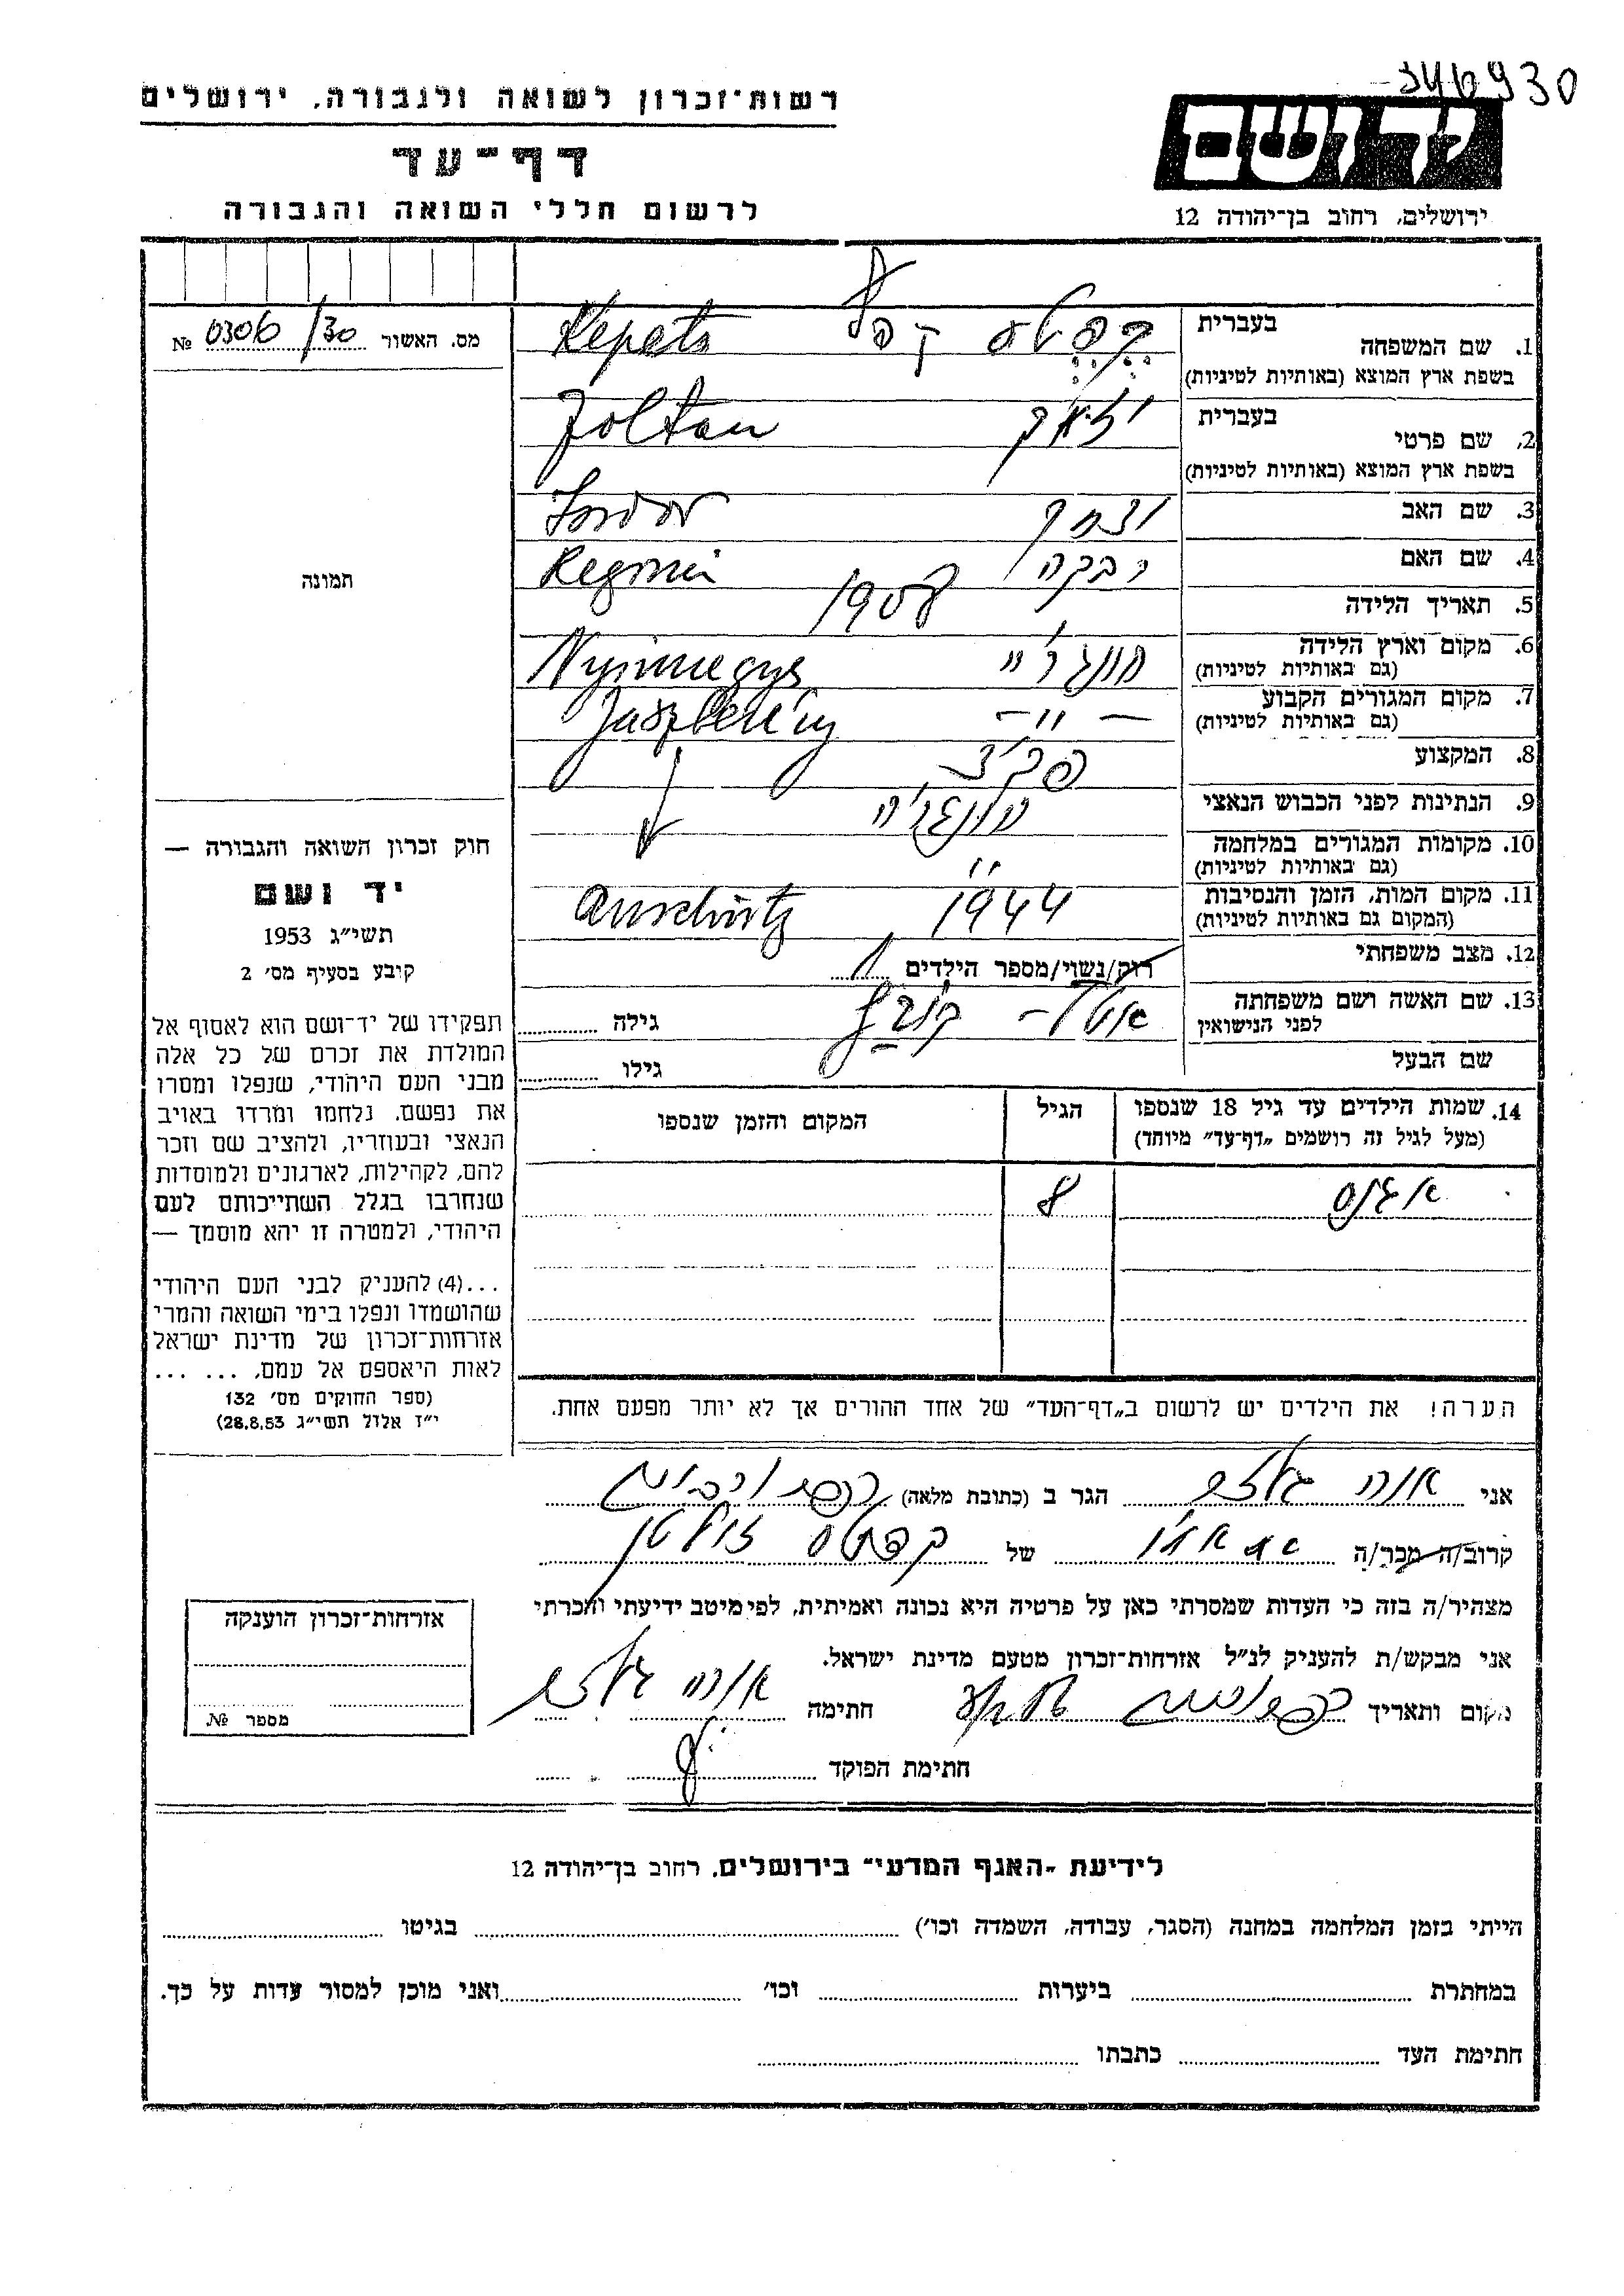 346930
רשות־זכרון לשואה ולגבורה, ירושלים
יד ושם
דף־עד
לרשום חללי השואה והגבורה
ירושלים, רחוב בן־יהודה 12
מס. האשור № 0306/30
1. שם המשפחה בעברית
בשפת ארץ המוצא (באותיות לטיניות)
Kepets
2. שם פרטי בעברית
בשפת ארץ המוצא (באותיות לטיניות)
Zoltan
3. שם האב יצחק Sandor
4. שם האם רבקה
5. תאריך הלידה 1908
6. מקום וארץ הלידה
(גם באותיות לטיניות)
7. מקום המגורים הקבוע
(גם באותיות לטיניות)
–״– Jaszberény
8. המקצוע
9. הנתינות לפני הכבוש הנאצי
10. מקומות המגורים במלחמה
(גם באותיות לטיניות)
11. מקום המות, הזמן והנסיבות
(המקום גם באותיות לטיניות)
1944 Auschwitz
12. מצב משפחתי
רוק/נשוי/מספר הילדים 1
13. שם האשה ושם משפחתה
לפני הנישואין
גילה
שם הבעל
גילו
תמונה
חוק זכרון השואה והגבורה —
יד ושם
תשי״ג 1953
קובע בסעיף מס׳ 2
תפקידו של יד־ושם הוא לאסוף אל
המולדת את זכרם של כל אלה
מבני העם היהודי, שנפלו ומסרו
את נפשם, נלחמו ומרדו באויב
הנאצי ובעוזריו, ולהציב שם וזכר
להם, לקהילות, לארגונים ולמוסדות
שנחרבו בגלל השתייכותם לעם
היהודי, ולמטרה זו יהא מוסמך —
...(4) להעניק לבני העם היהודי
שהושמדו ונפלו בימי השואה והמרי
אזרחות־זכרון של מדינת ישראל
לאות היאספם אל עמם, ... ...
(ספר החוקים מס׳ 132
י״ז אלול תשי״ג 28.8.53)
14. שמות הילדים עד גיל 18 שנספו
(מעל לגיל זה רושמים „דף־עד” מיוחד)
הגיל
המקום והזמן שנספו
אגנס 8
הערה! את הילדים יש לרשום ב„דף־העד” של אחד ההורים אך לא יותר מפעם אחת.
אני אנה הגר ב (כתובת מלאה)
קרוב/ה מכר/ה של קפטס זולטן
מצהיר/ה בזה כי העדות שמסרתי כאן על פרטיה היא נכונה ואמיתית, לפי מיטב ידיעתי והכרתי
אני מבקש/ת להעניק לנ״ל אזרחות־זכרון מטעם מדינת ישראל.
מקום ותאריך חתימה
חתימת הפוקד
אזרחות־זכרון הוענקה
מספר №
לידיעת „האגף המדעי” בירושלים, רחוב בן־יהודה 12
הייתי בזמן המלחמה במחנה (הסגר, עבודה, השמדה וכו׳) בגיטו
במחתרת ביערות וכו׳ ואני מוכן למסור עדות על כך.
חתימת העד כתבתו